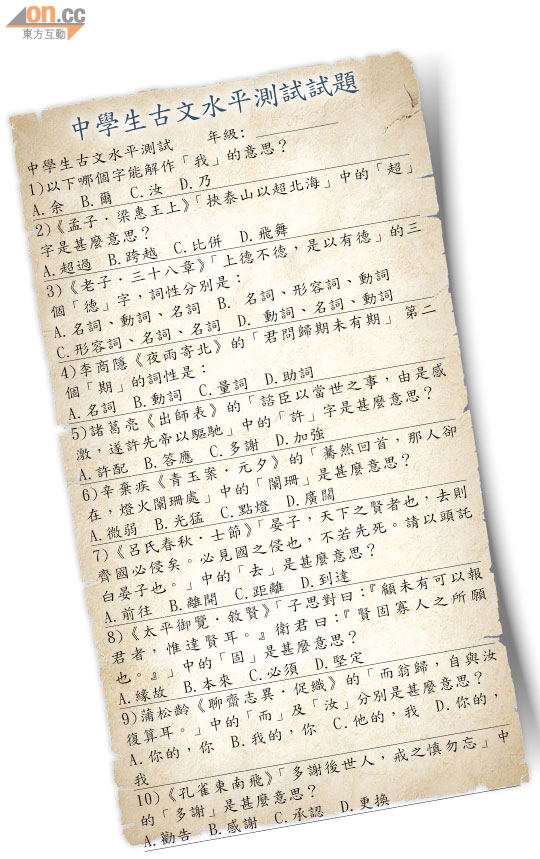 on.cc
東方互動
中學生古文水平測試試題
中學生古文水平測試 年級：
1)以下哪個字能解作「我」的意思？
A.余 B.爾 C.汝 D.乃
2)《孟子．梁惠王上》「挾泰山以超北海」中的「超」
字是甚麼意思？
A.超過 B.跨越 C.比併 D.飛舞
3)《老子．三十八章》「上德不德，是以有德」的三
個「德」字，詞性分別是：
A.名詞、動詞、名詞 B. 名詞、形容詞、動詞
C.形容詞、名詞、名詞 D. 動詞、名詞、動詞
4)李商隱《夜雨寄北》的「君問歸期未有期」 第二
個「期」的詞性是：
A.名詞 B.動詞 C.量詞 D.助詞
5)諸葛亮《出師表》的「諮臣以當世之事，由是感
激，遂許先帝以驅馳」中的「許」字是甚麼意思？
A.許配 B.答應 C.多謝 D.加強
6)辛棄疾《青玉案．元夕》的「驀然回首，那人卻
在，燈火闌珊處」中的「闌珊」是甚麼意思？
A.微弱 B.光猛 C.點燈 D.廣闊
7)《呂氏春秋．士節》「晏子，天下之賢者也，去則
齊國必侵矣。必見國之侵也，不若先死。請以頭託
白晏子也。」中的「去」是甚麼意思？
A.前往 B.離開 C.距離 D.到達
8)《太平御覽．敘賢》「子思對曰：『顧未有可以報
君者，惟達賢耳。』衛君曰：『賢固寡人之所願
也。』」中的「固」是甚麼意思？
A.緣故 B.本來 C.必須 D.堅定
9)蒲松齡《聊齋志異．促織》的「而翁歸，自與汝
復算耳。」中的「而」及「汝」分別是甚麼意思？
A.你的，你 B.我的，你 C.他的，我 D.你的，
我
10)《孔雀東南飛》「多謝後世人，戒之慎勿忘」中
的「多謝」是甚麼意思？
A.勸告 B.感謝 C.承認 D.更換